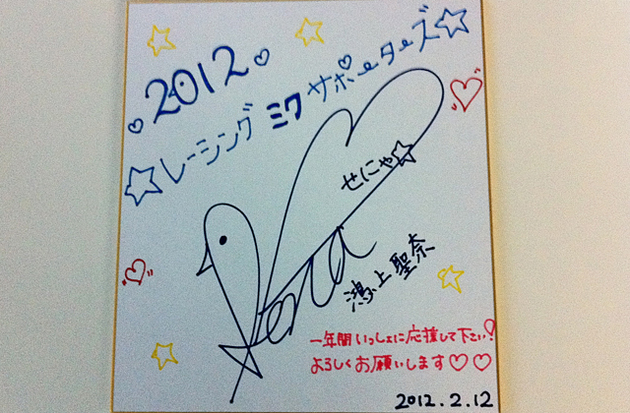 ♡2012♡
☆レーシングミクサポーターズ☆
せにゃ☆
Sena
鴻上聖奈
一年間いっしょに応援して下さい!
よろしくお願いします♡♡
2012.2.12